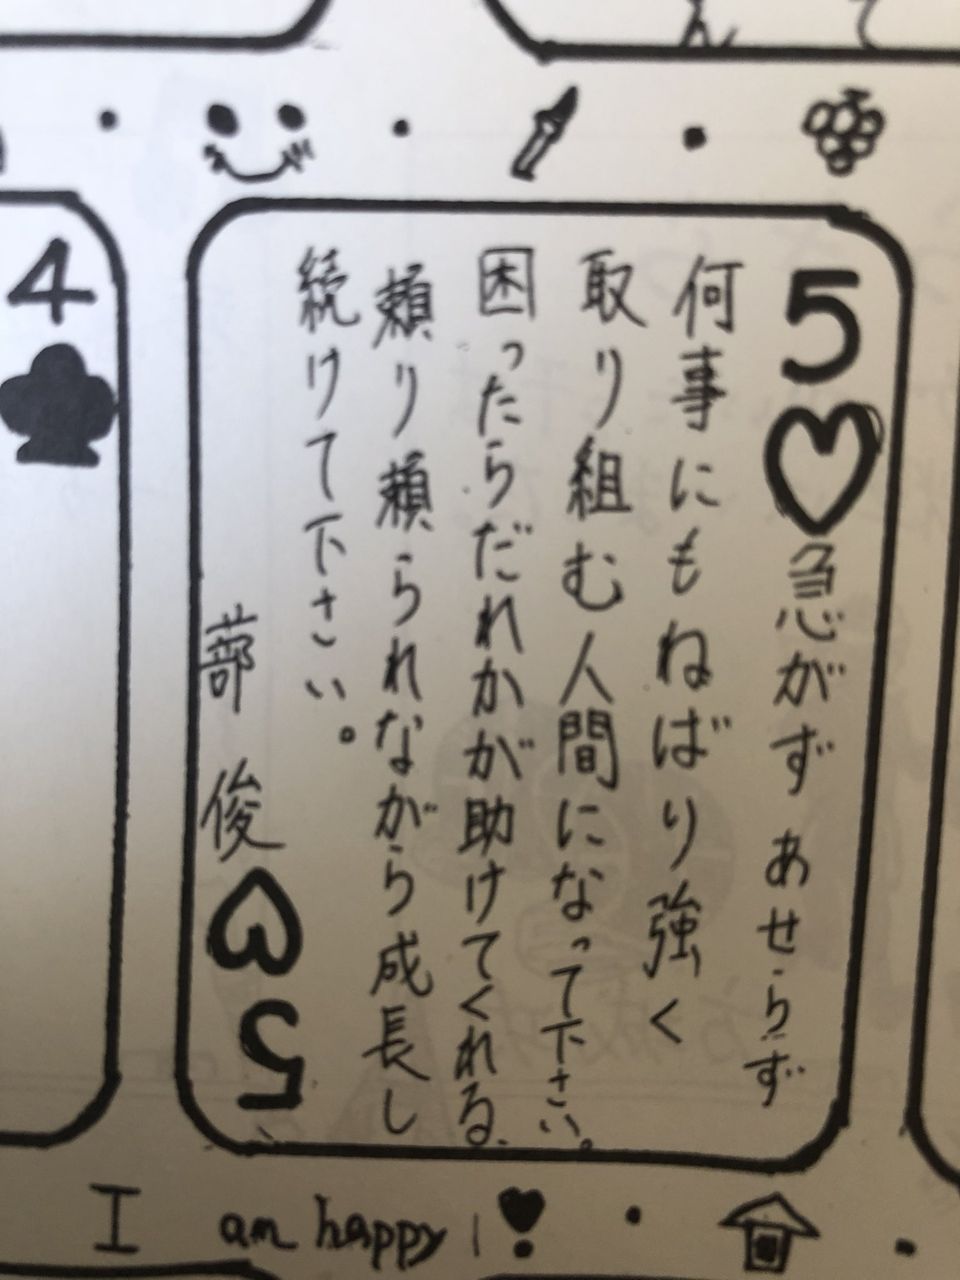 5♡急がず あせらず
何事にもねばり強く
取り組む人間になって下さい。
困ったらだれかが助けてくれる、
頼り頼られながら成長し
続けて下さい。
蔀 俊♡5
4♣
I am happy!